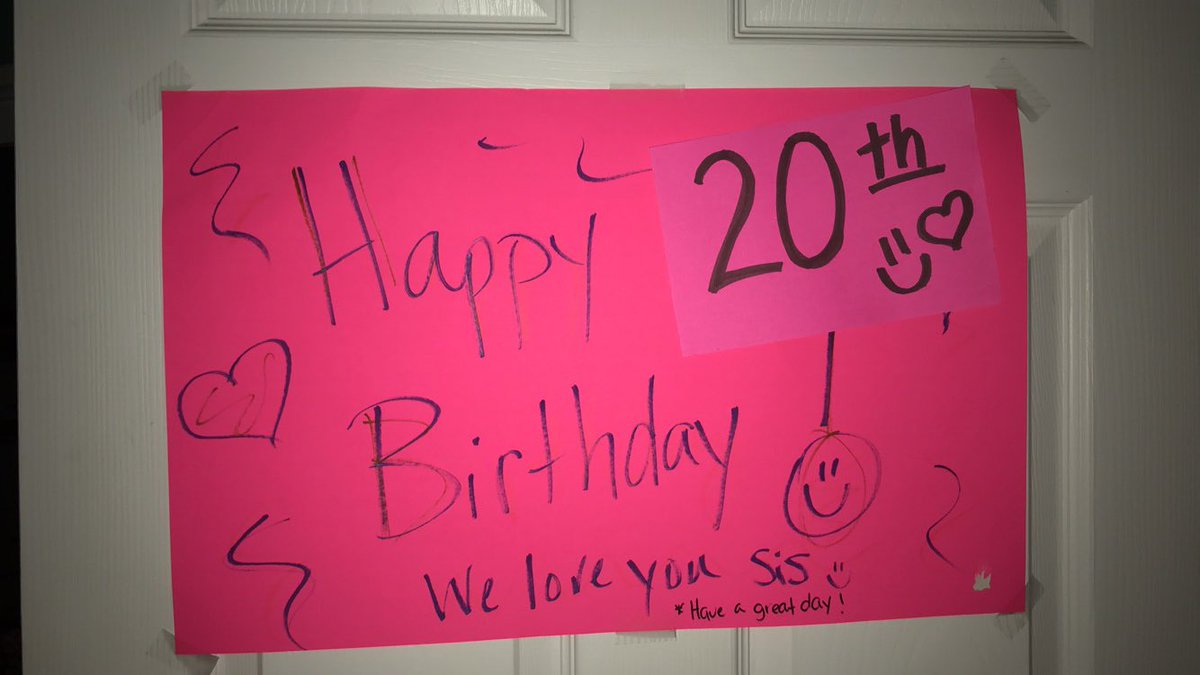 Happy
20th
Birthday
We love you sis
* Have a great day!